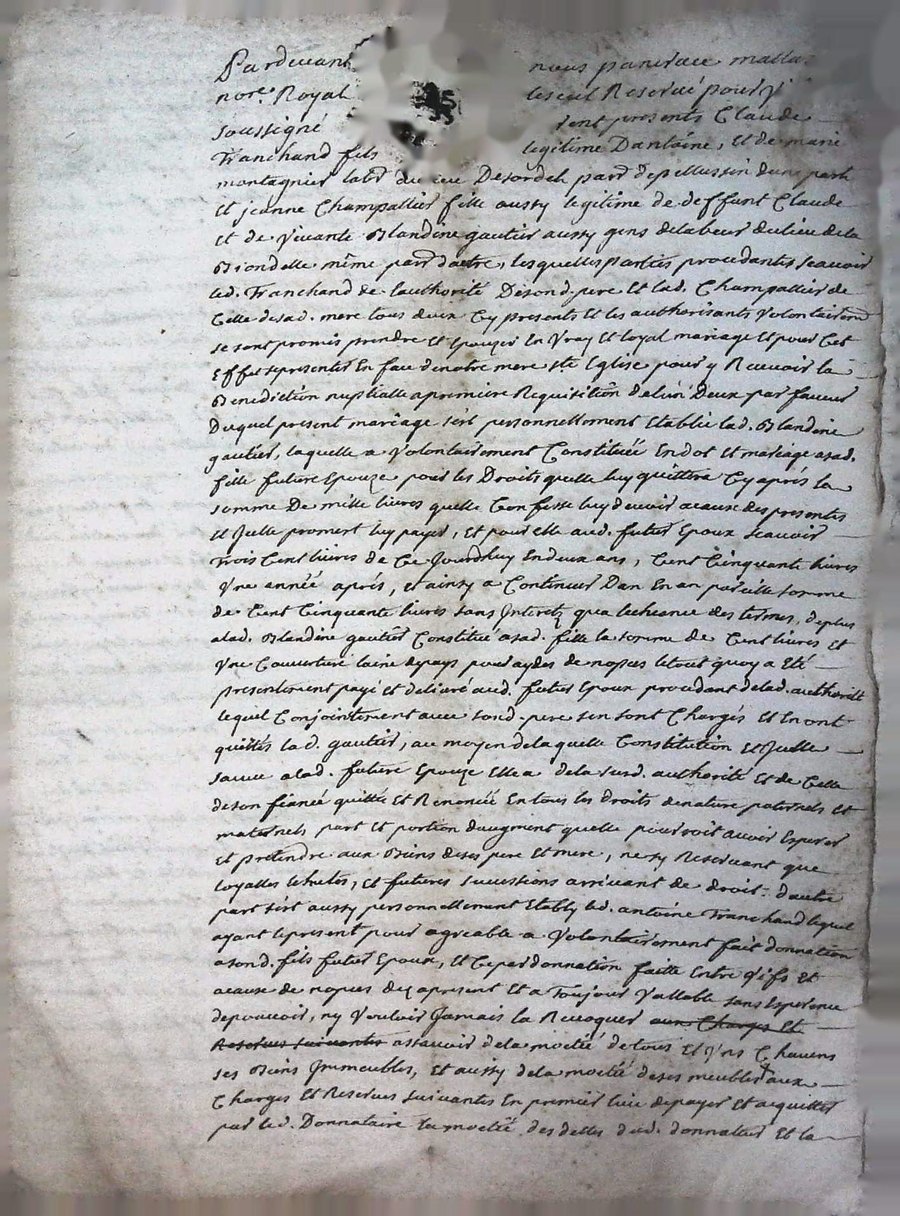 Pardevant nous pancrace matta
nore. Royal Reservé pour
soussigné sont presents Claude
Franchand fils legitime Dantoine, Et de marie
montagnier labr du lieu Desordel parr Depellussin dune part
Et jeanne Champallier fille aussy legitime de deffunt Claude
et de Vivante Blandine gautier aussy gens delabeur du lieu dela
Biondelle même parr dautre, lesquelles parties procedantes scavoir
led. Franchand de lauthorité Desond. pere et lad. Champallier de
Celle desad. mere tous deux Cy presents et les authorisants Volontairemt
se sont promis prendre et Epouzer En Vray et loyal mariage et pour Cet
Effet se presenter En face denotre mere ste Eglise pour y Recevoir la
Benediction nuptialle a premiere Requisition de lun Deux par faveur
Duquel present mariage sest personnellement Etablie lad. Blandine
gautier, laquelle a Volontairement Constituée En dot et mariage asad.
fille future Epouze pour les Droits quelle luy quittera Cy aprés la
somme De mille livres quelle Confesse luy devoir acause des presentes
et Icelle promet luy payer, et pour elle aud. futur Epoux scavoir
Trois Cent livres de Ce Jourdhuy En deux ans, Cent Cinquante livres
Une année aprés, et ainsy a Continuer Dan En an pareille somme
de Cent Cinquante livres sans Interetz qua lecheance des termes, deplus
alad. Blandine gautier Constitué asad. fille la somme de Cent livres et
Une Couverture laine depays pour aydes de nopces le tout quoy a Eté
presentement payé et delivré aud. futur Epoux procedant delad. authorité
lequel Conjointement avec sond. pere sen sont Chargés et En ont
quittés lad. gautier, au moyen de laquelle Constitution et Icelle
sauve alad. future Epouze Elle a de la susd. authorité et de Celle
de son fiancé quitté et Renoncée En tous les droits de nature paternels et
maternels part et portion daugment quelle pourroit avoir Esperer
et pretendre aux Biens deses pere et mere, ne sy Reservant que
loyalles Echutes, et futures successions arrivant de droit. Dautre
part sest aussy personnellement Etably led. antoine Franchand lequel
ayant le present pour agreable a Volontairement fait donnation
a sond. fils futur Epoux, et Ce par donnation faite Entre vifs et
acause de nopces des apresent et a Toujour Vallable sans Esperance
depouvoir, ny Vouloir Jamais la Revoquer aux Charges et
Reserves suivantes assavoir dela moctié de tous Et Chacuns
ses Biens Immeubles, et aussy dela moctié deses meubles aux
Charges et Reserves suivantes En premier lieu de payer et acquitter
par led. Donnataire la moctié des dettes dud. donnateur et la